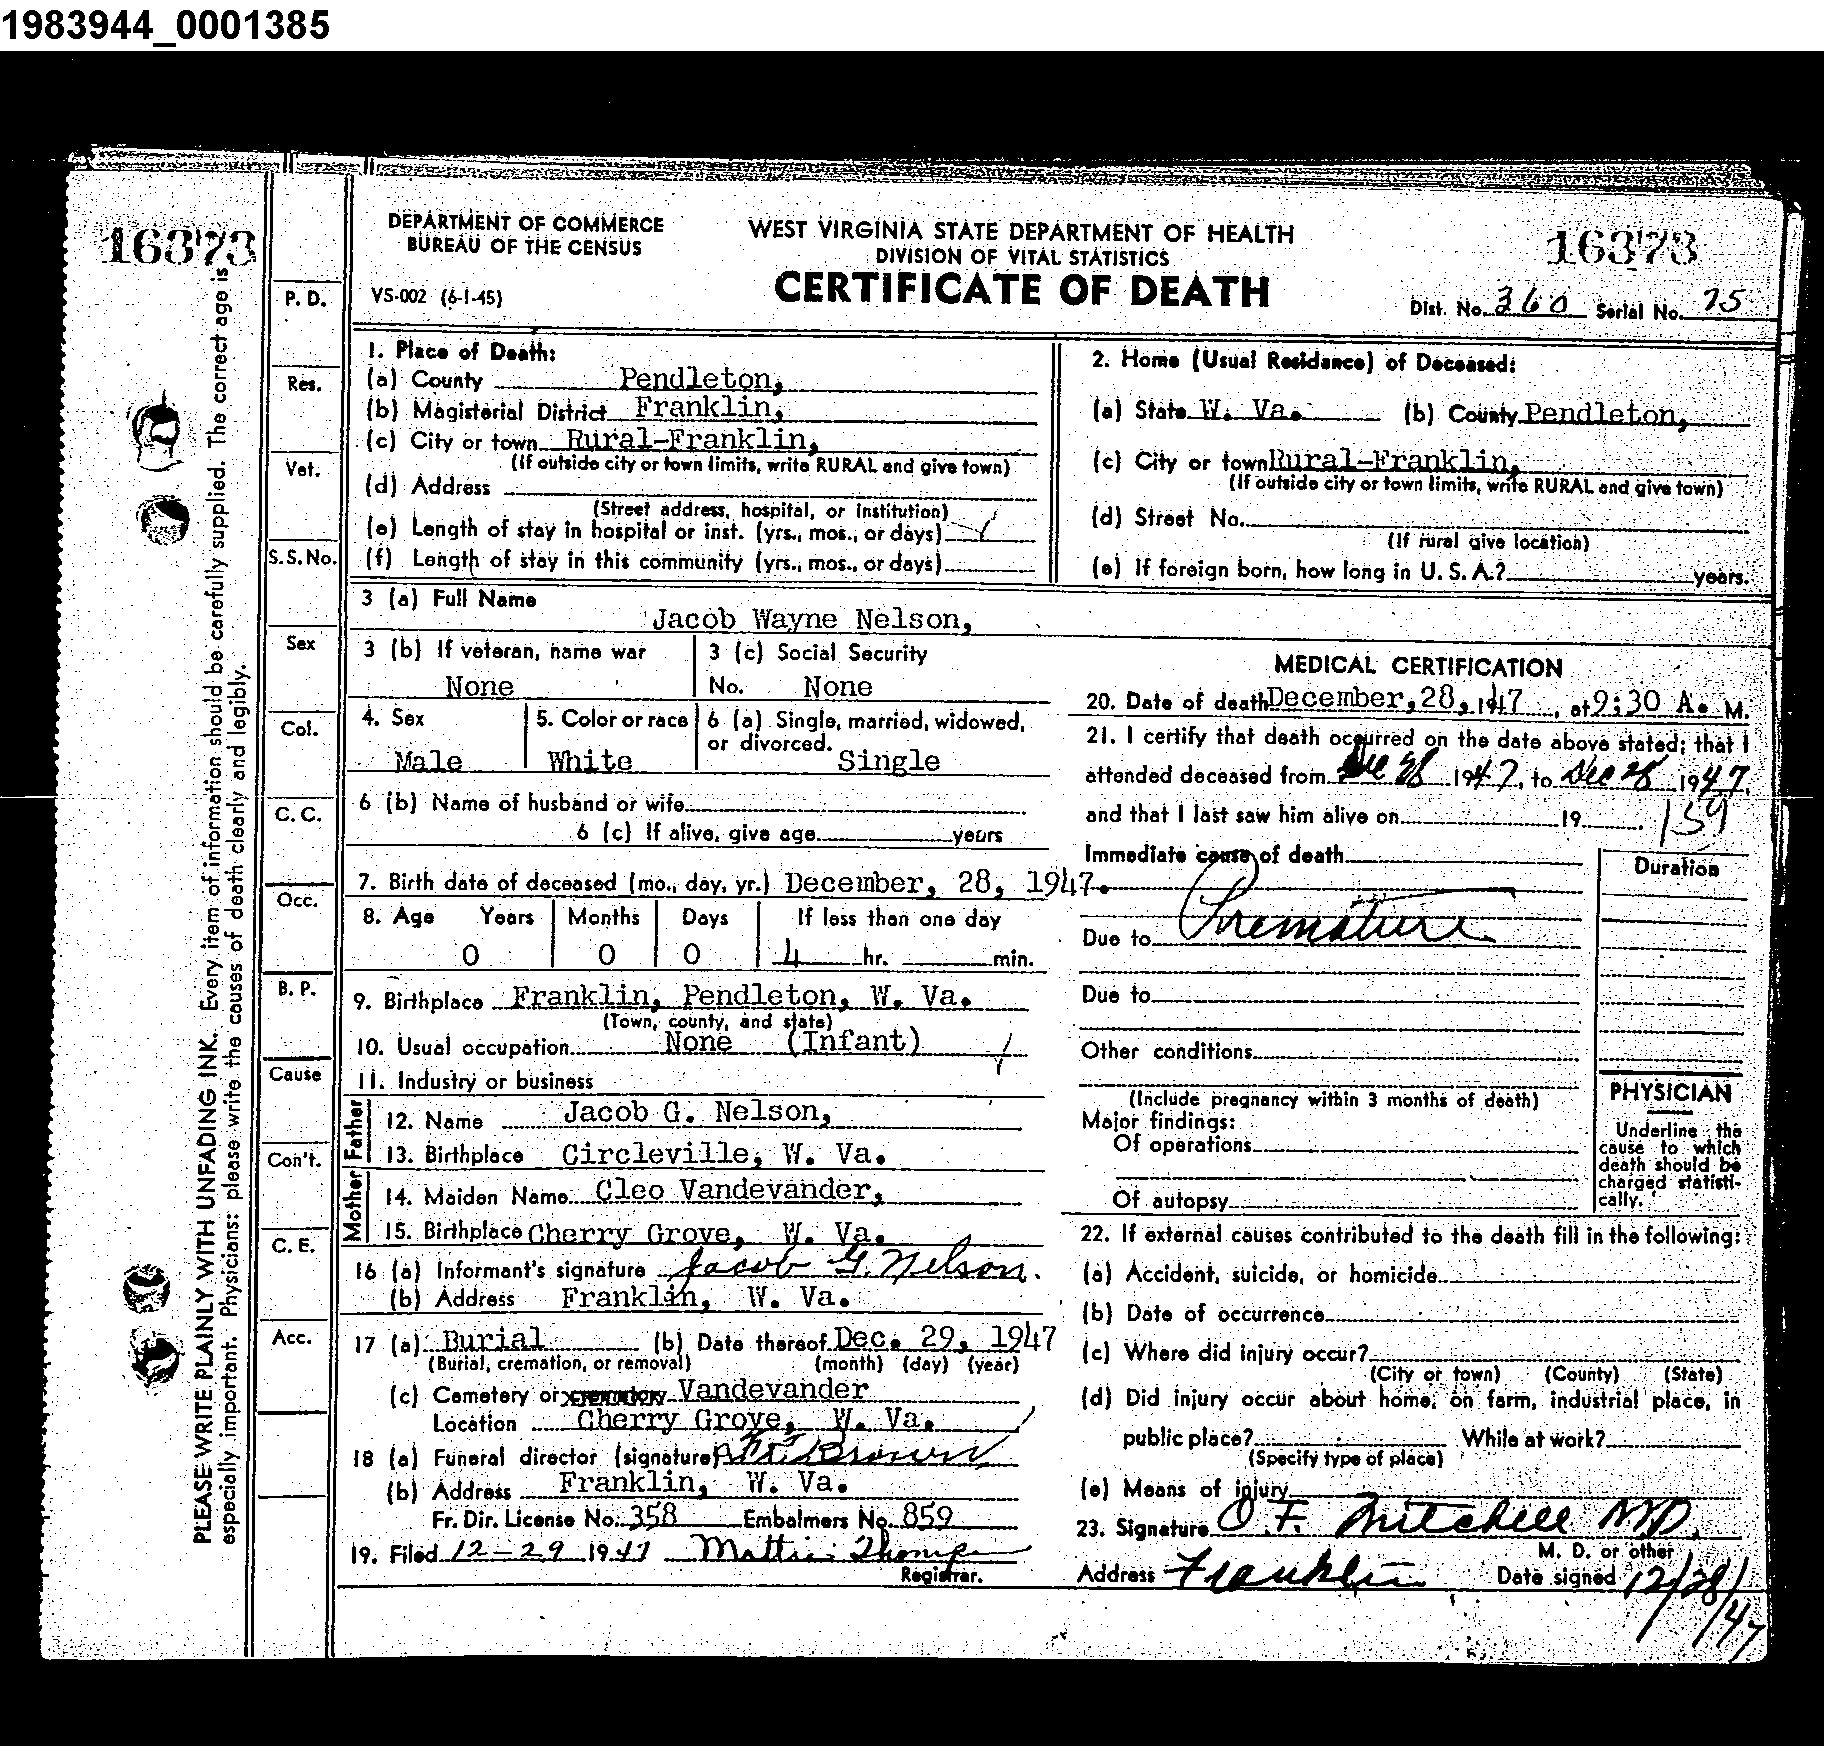 1983944_0001385
16373
DEPARTMENT OF COMMERCE
BUREAU OF THE CENSUS
VS-002 (6-1-45)
WEST VIRGINIA STATE DEPARTMENT OF HEALTH
DIVISION OF VITAL STATISTICS
CERTIFICATE OF DEATH
16373
Dist. No. 360 Serial No. 75
PLEASE WRITE PLAINLY WITH UNFADING INK. Every item of information should be carefully supplied. The correct age is
especially important. Physicians: please write the causes of death clearly and legibly.
P. D.
Res.
Vet.
S. S. No.
Sex
Col.
C. C.
Occ.
B. P.
Cause
Con't.
C. E.
Acc.
1. Place of Death:
(a) County Pendleton,
(b) Magisterial District Franklin,
(c) City or town Rural-Franklin,
(If outside city or town limits, write RURAL and give town)
(d) Address
(Street address, hospital, or institution)
(e) Length of stay in hospital or inst. (yrs., mos., or days)
(f) Length of stay in this community (yrs., mos., or days)
2. Home (Usual Residance) of Deceased:
(a) State W. Va. (b) County Pendleton,
(c) City or town Rural-Franklin,
(If outside city or town limits, write RURAL and give town)
(d) Street No.
(If rural give location)
(e) If foreign born, how long in U. S. A.? years.
3 (a) Full Name
Jacob Wayne Nelson,
3 (b) If veteran, name war
None
3 (c) Social Security
No. None
4. Sex
Male
5. Color or race
White
6 (a) Single, married, widowed,
or divorced.
Single
6 (b) Name of husband or wife
6 (c) If alive, give age years
7. Birth date of deceased (mo., day, yr.) December, 28, 1947.
8. Age Years Months Days If less than one day
0 0 0 4 hr. min.
9. Birthplace Franklin, Pendleton, W. Va.
(Town, county, and state)
10. Usual occupation None (Infant)
11. Industry or business
Father
12. Name Jacob G. Nelson,
13. Birthplace Circleville, W. Va.
Mother
14. Maiden Name Cleo Vandevander,
15. Birthplace Cherry Grove, W. Va.
16 (a) Informant's signature Jacob G. Nelson.
(b) Address Franklin, W. Va.
17 (a) Burial (b) Date thereof Dec. 29, 1947
(Burial, cremation, or removal) (month) (day) (year)
(c) Cemetery or Vandevander
Location Cherry Grove, W. Va.
18 (a) Funeral director (signature) Brown
(b) Address Franklin, W. Va.
Fr. Dir. License No. 358 Embalmers No. 859
19. Filed 12-29 1947 Mattie Thompson
Registrar.
MEDICAL CERTIFICATION
20. Date of death December, 28, 1947 , at 9:30 A. M.
21. I certify that death occurred on the date above stated; that I
attended deceased from Dec 28 1947, to Dec 28 1947,
and that I last saw him alive on 19
159
Immediate cause of death
Duration
Premature
Due to
Due to
Other conditions
(Include pregnancy within 3 months of death)
Major findings:
Of operations
Of autopsy
PHYSICIAN
Underline the
cause to which
death should be
charged statisti-
cally.
22. If external causes contributed to the death fill in the following:
(a) Accident, suicide, or homicide
(b) Date of occurrence
(c) Where did injury occur?
(City or town) (County) (State)
(d) Did injury occur about home, on farm, industrial place, in
public place? While at work?
(Specify type of place)
(e) Means of injury
23. Signature O. F. Mitchell MD.
M. D. or other
Address Franklin Date signed 12/28/47